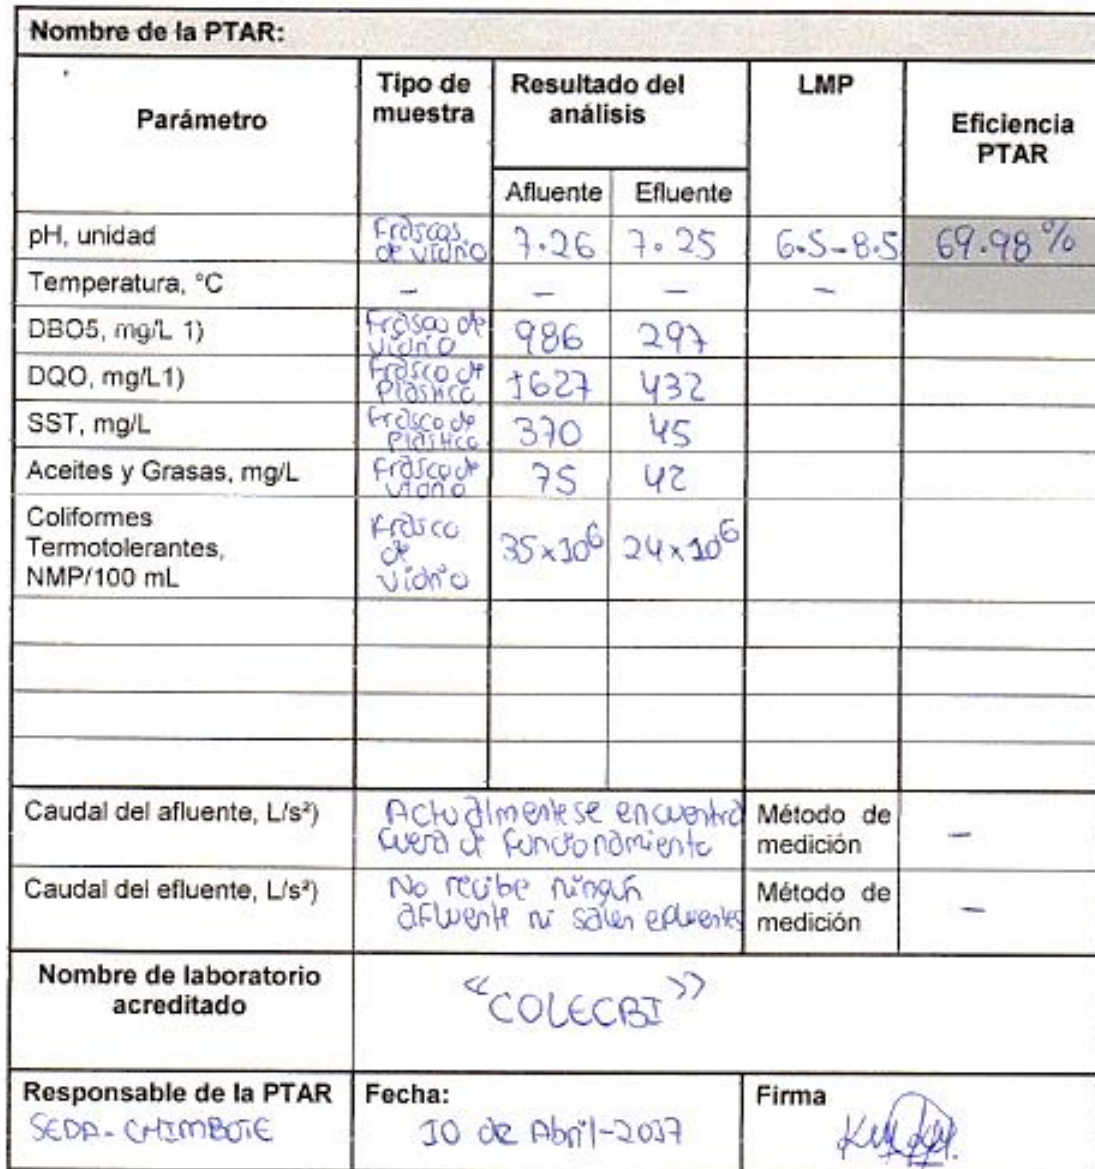 Nombre de la PTAR:
Parámetro
Tipo de muestra
Resultado del análisis
LMP
Eficiencia PTAR
Afluente
Efluente
pH, unidad
Frascos de vidrio
7.26
7.25
6.5-8.5
69.98%
Temperatura, °C
-
-
-
-
DBO5, mg/L 1)
Frasco de vidrio
986
297
DQO, mg/L1)
Frasco de Plástico
1627
432
SST, mg/L
Frasco de Plástico
370
45
Aceites y Grasas, mg/L
Frasco de vidrio
75
42
Coliformes
Termotolerantes,
NMP/100 mL
Frasco
de
vidrio
35x10⁶
24x10⁶
Caudal del afluente, L/s²)
Actualmente se encuentra
fuera de funcionamiento
Método de
medición
-
Caudal del efluente, L/s²)
No recibe ningún
afluente ni salen efluentes
Método de
medición
-
Nombre de laboratorio
acreditado
"COLECBI"
Responsable de la PTAR
SEDA-CHIMBOTE
Fecha:
10 de Abril-2017
Firma